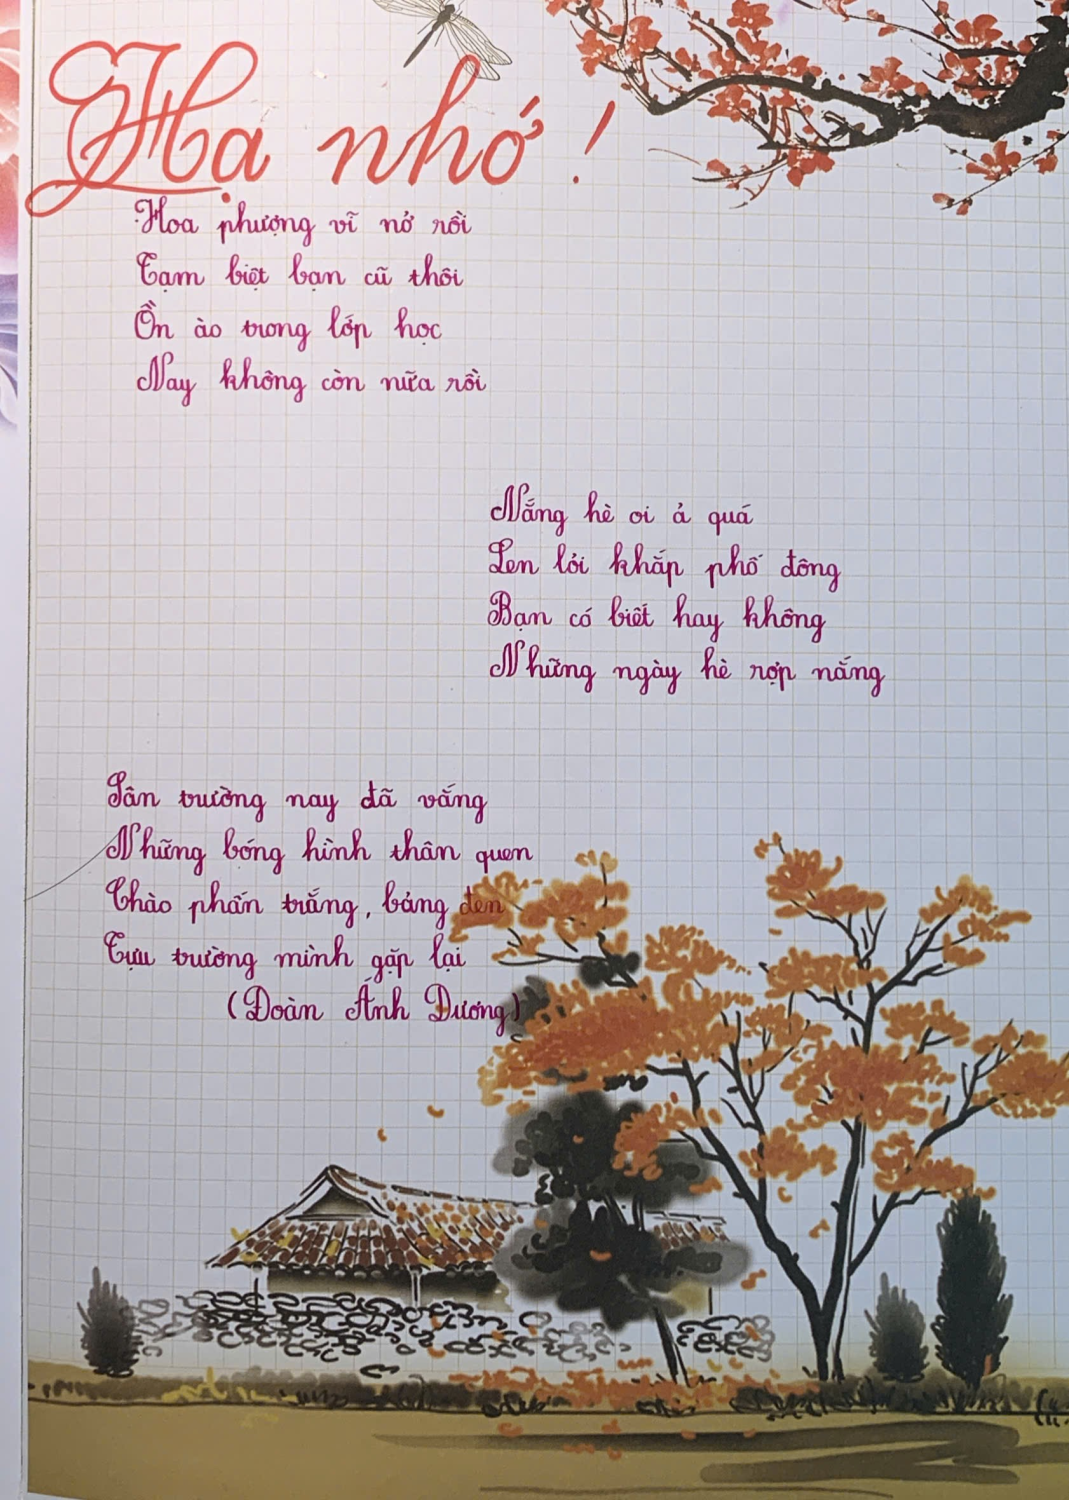 Hạ nhớ !
Hoa phượng vĩ nở rồi
Tạm biệt bạn cũ thôi
Ồn ào trong lớp học
Nay không còn nữa rồi
Nắng hè oi ả quá
Len lỏi khắp phố đông
Bạn có biết hay không
Những ngày hè rợp nắng
Sân trường nay đã vắng
Những bóng hình thân quen
Chào phấn trắng, bảng đen
Tựu trường mình gặp lại
(Đoàn Ánh Dương)